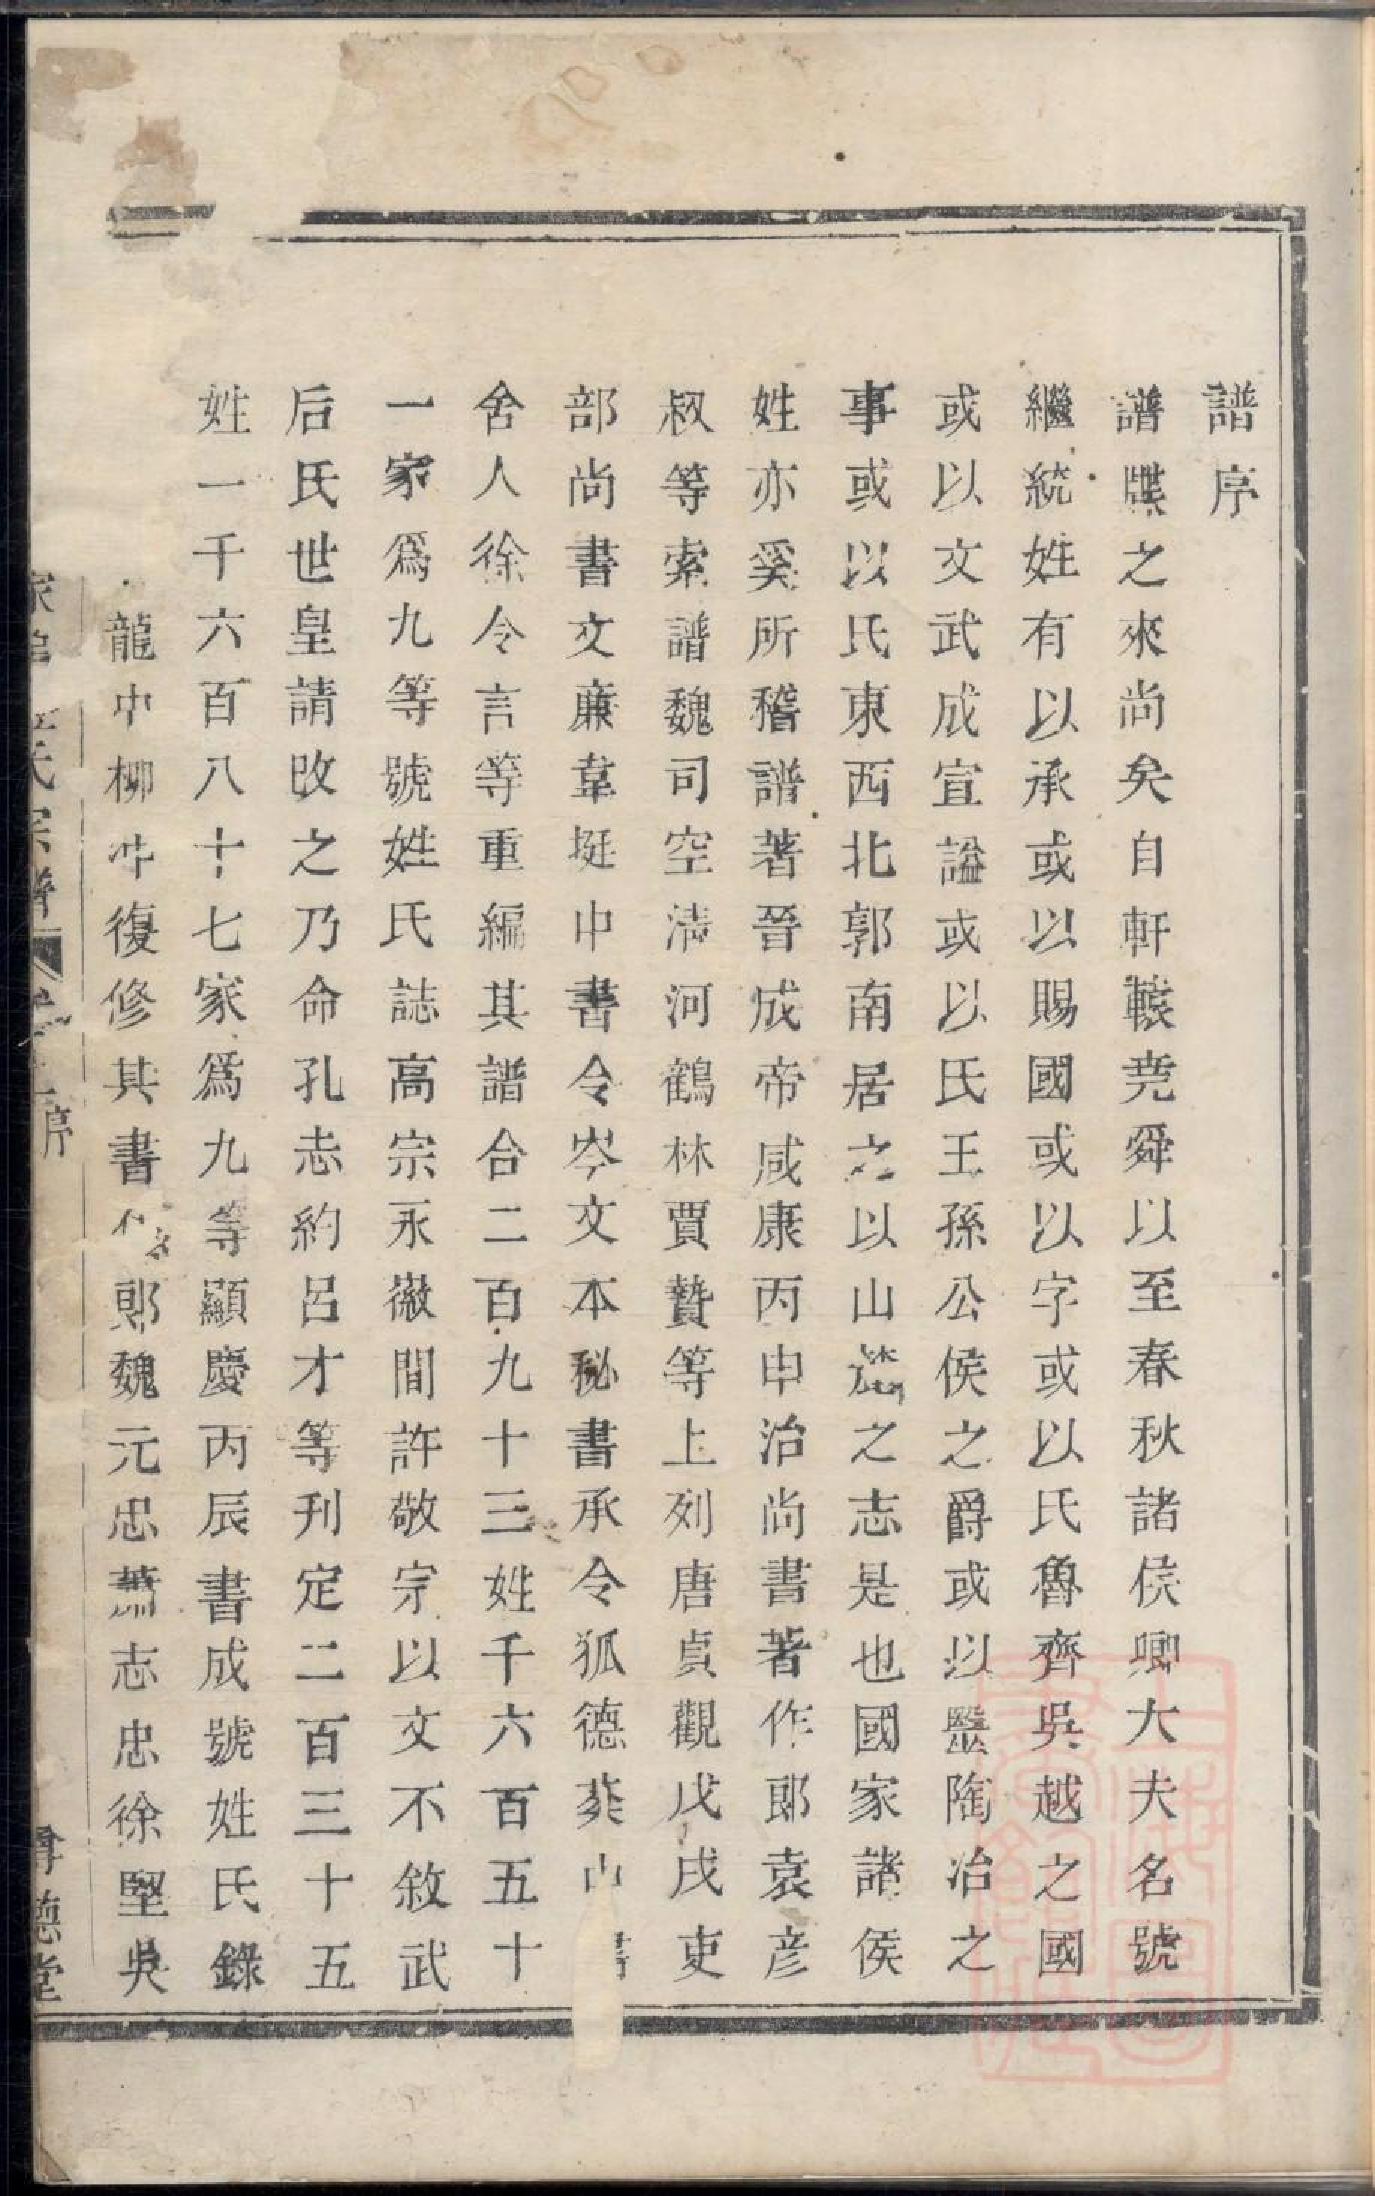 譜序
譜牒之來尚矣自軒轅堯舜以至春秋諸侯卿大夫名號
繼統姓有以承或以賜國或以字或以氏魯齊吳越之國
或以文武成宣謚或以氏王孫公侯之爵或以毉陶冶之
事或以氏東西北郭南居之以山之志是也國家諸侯
姓亦奚所稽譜著晉成帝咸康丙申治尚書著作郎袁彦
叔等索譜魏司空淸河鶴林賈贊等上列唐貞觀戊戌吏
部尚書文廉韋挺中書令岑文本秘書承令狐德棻書
舍人徐令言等重編其譜合二百九十三姓千六百五十
一家爲九等號姓氏誌高宗永徽間許敬宗以文不敘武
后氏世皇請改之乃命孔志約呂才等刊定二百三十五
姓一千六百八十七家爲九等顯慶丙辰書成號姓氏錄
龍中柳冲復修其書郎魏元忠蕭志忠徐堅吳
氏宗譜 序 德堂